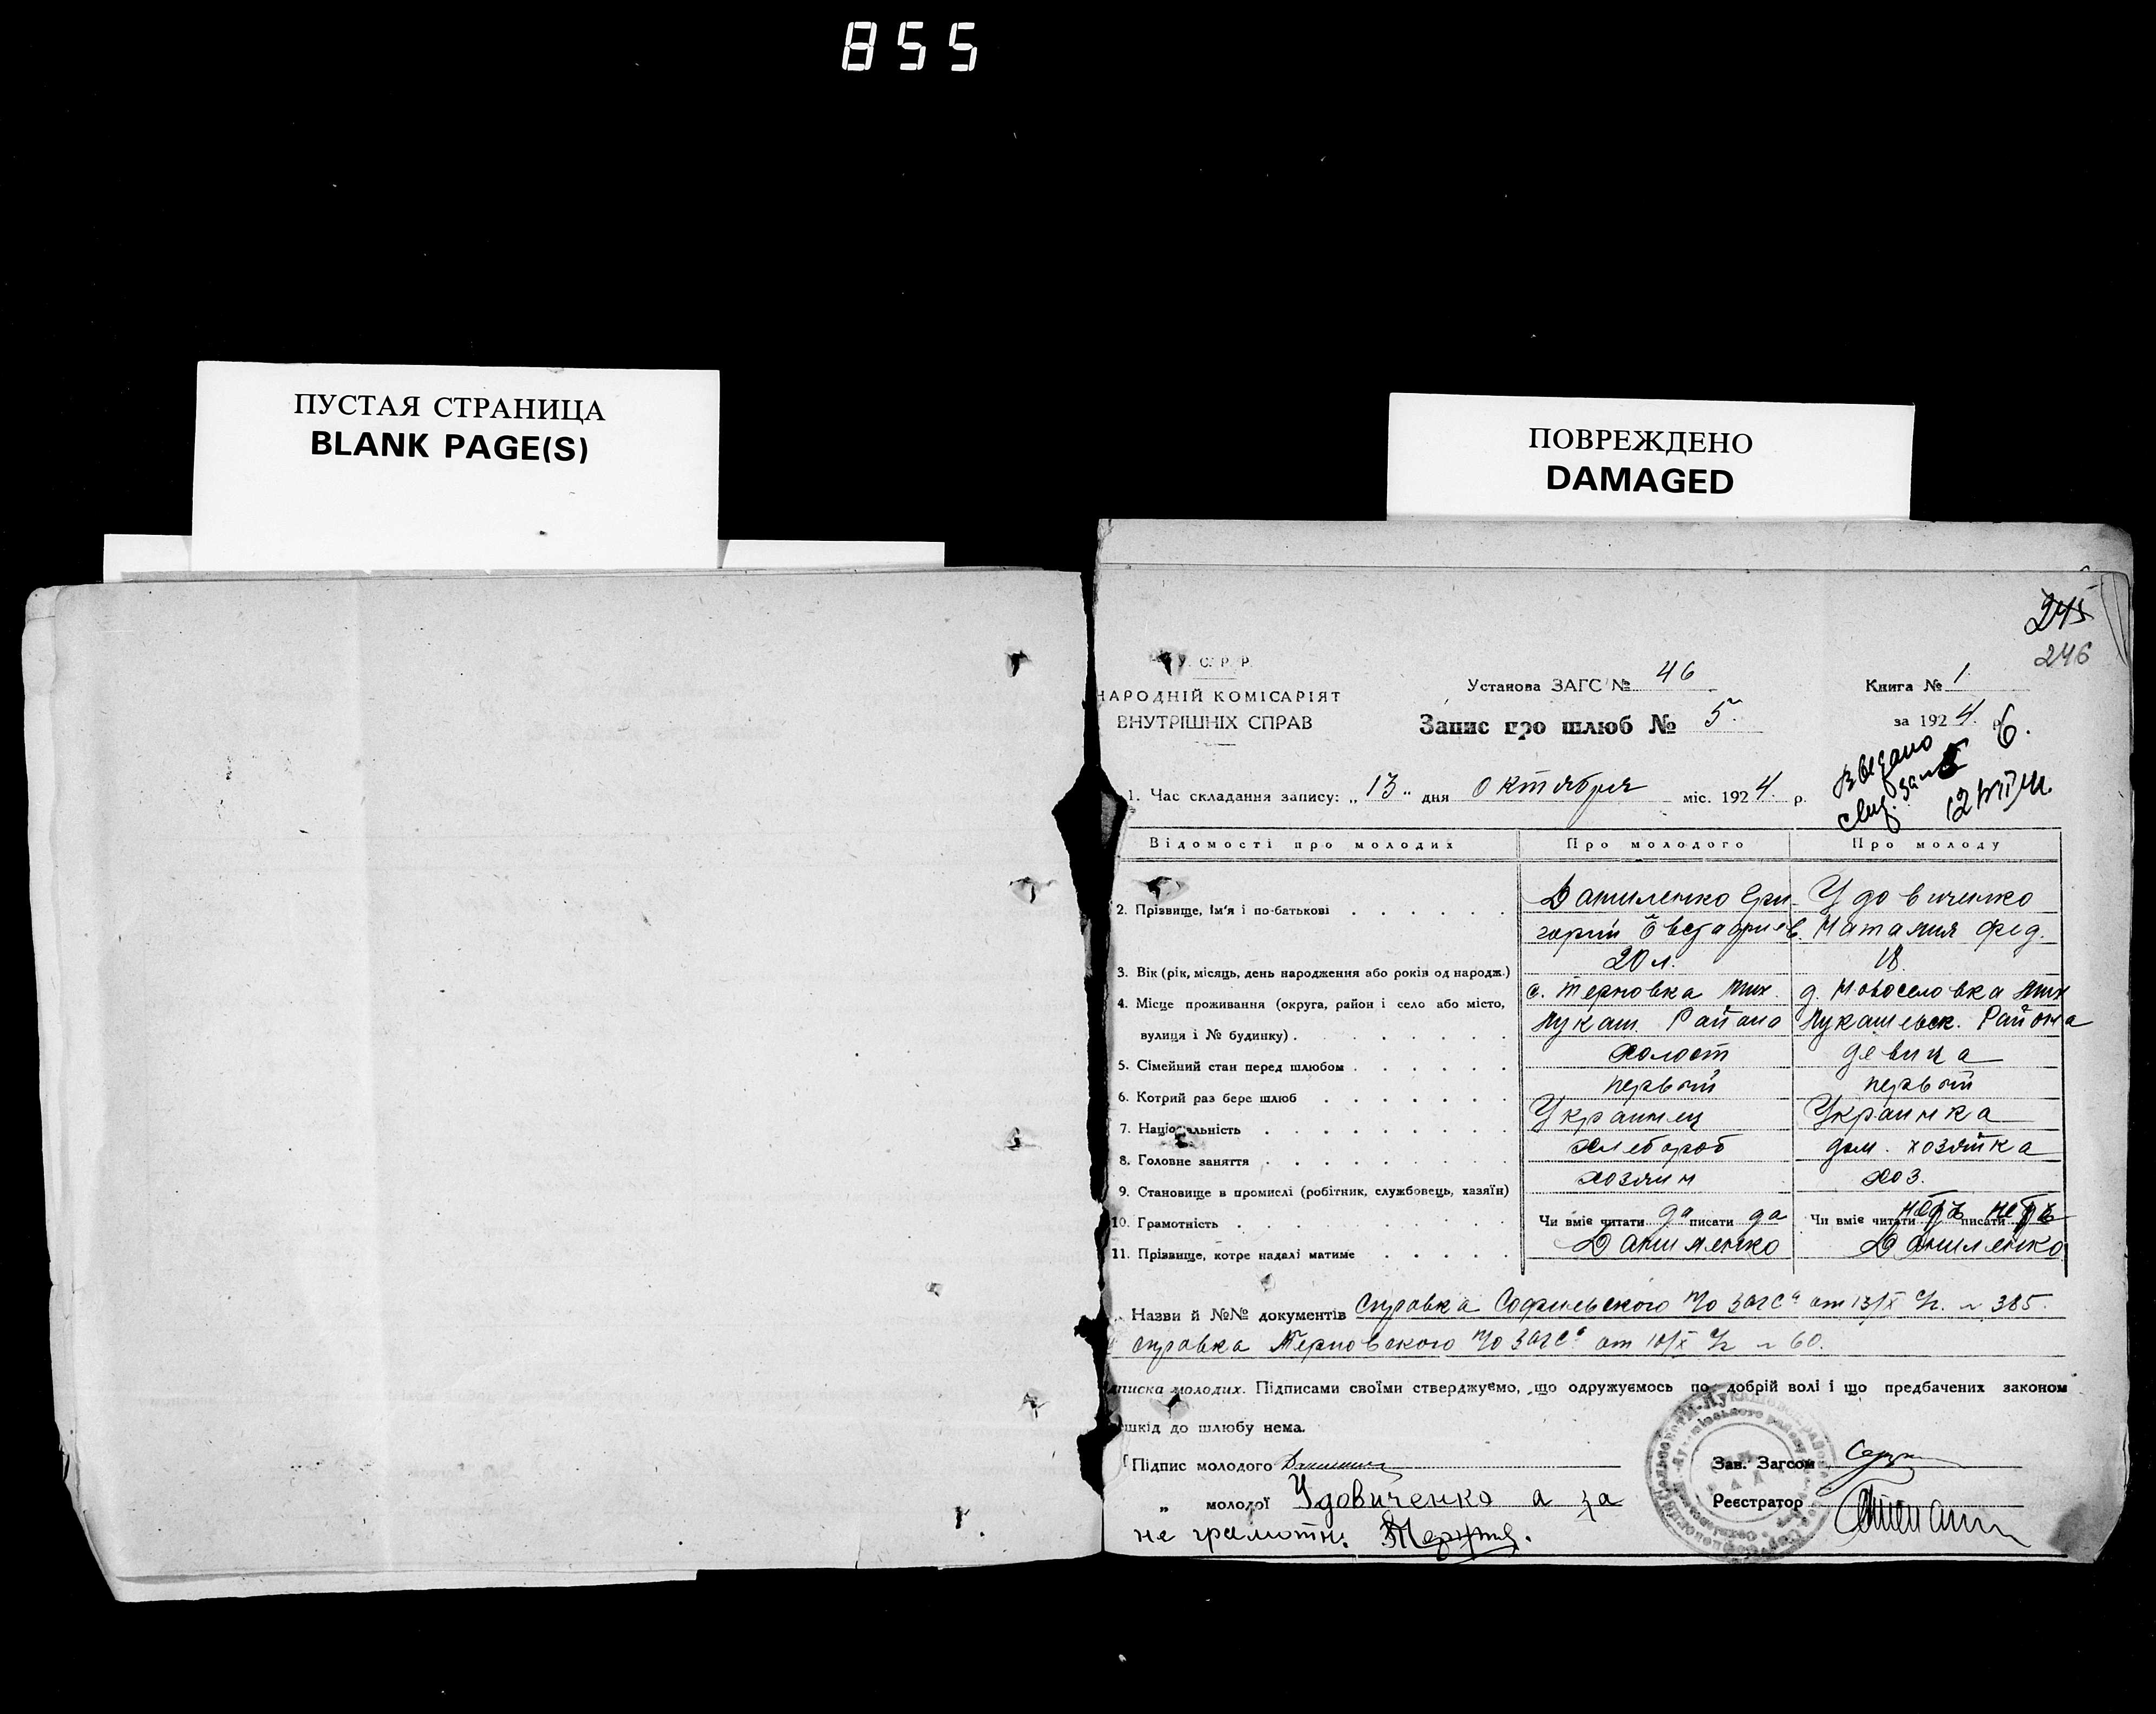 855
ПУСТАЯ СТРАНИЦА
BLANK PAGE(S)
ПОВРЕЖДЕНО
DAMAGED
245
246
У. С. Р. Р.
НАРОДНІЙ КОМІСАРІЯТ
ВНУТРІШНІХ СПРАВ
Установа ЗАГС № 46
Книга № 1
Запис про шлюб № 5
за 1924 р.
6.
1. Час складання запису: „13" дня октября міс. 1924 р.
Відомості про молодих Про молодого Про молоду
2. Прізвище, ім'я і по-батькові Даниленко Гри- Удовиченко
горий Евстафиев. Наталия Фед.
3. Вік (рік, місяць, день народження або років од народж.) 20 л. 18.
4. Місце проживання (округа, район і село або місто, с. Терновка Мих. д. Новоселовка Мих
вулиця і № будинку) . Лукаш. Района Лукашевск. Района
5. Сімейний стан перед шлюбом холост девица
6. Котрий раз бере шлюб первый первый
7. Національність Украинец Украинка
8. Головне заняття хлебороб дом. хозяйка
9. Становище в промислі (робітник, службовець, хазяїн) хозяин хоз.
10. Грамотність Чи вміє читати да писати да Чи вміє читати нетъ писати нетъ
11. Прізвище, котре надалі матиме Даниленко Даниленко
Назви й №№ документів Справка Софиевского п/о загса от 13/X с/г. № 385.
справка Терновского п/о загса от 10/X с/г № 60.
дписка молодих. Підписами своїми стверджуємо, що одружуємось по добрій волі і що предбачених законом
шкід до шлюбу нема.
Підпис молодого
Зав. Загсом
„ молодої Удовиченко а за
Реєстратор
не грамотн.